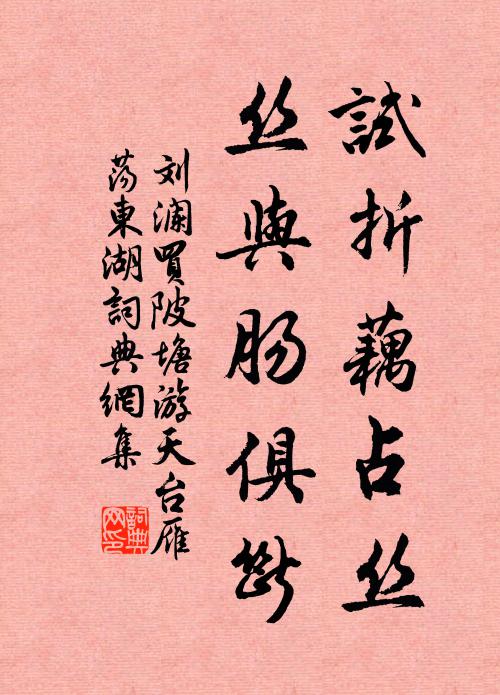 試折藕占丝
丝與肠俱断
刘澜買陂塘游天台雁
荡東湖詞典網集
詞典网印